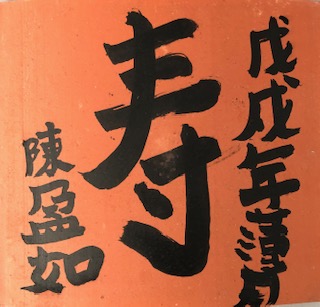 戊戌年月
寿
陳盈如